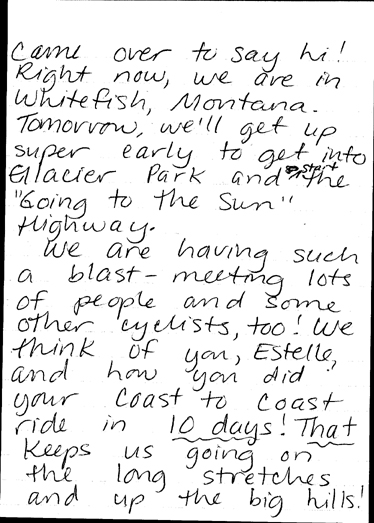 Came over to say hi!
Right now, we are in
Whitefish, Montana.
Tomorrow, we'll get up
super early to get into
Glacier Park and start the
"Going to the Sun"
Highway.
We are having such
a blast - meeting lots
of people and some
other cyclists, too! We
think of you, Estelle,
and how you did
your coast to coast
ride in 10 days! That
keeps us going on
the long stretches
and up the big hills!